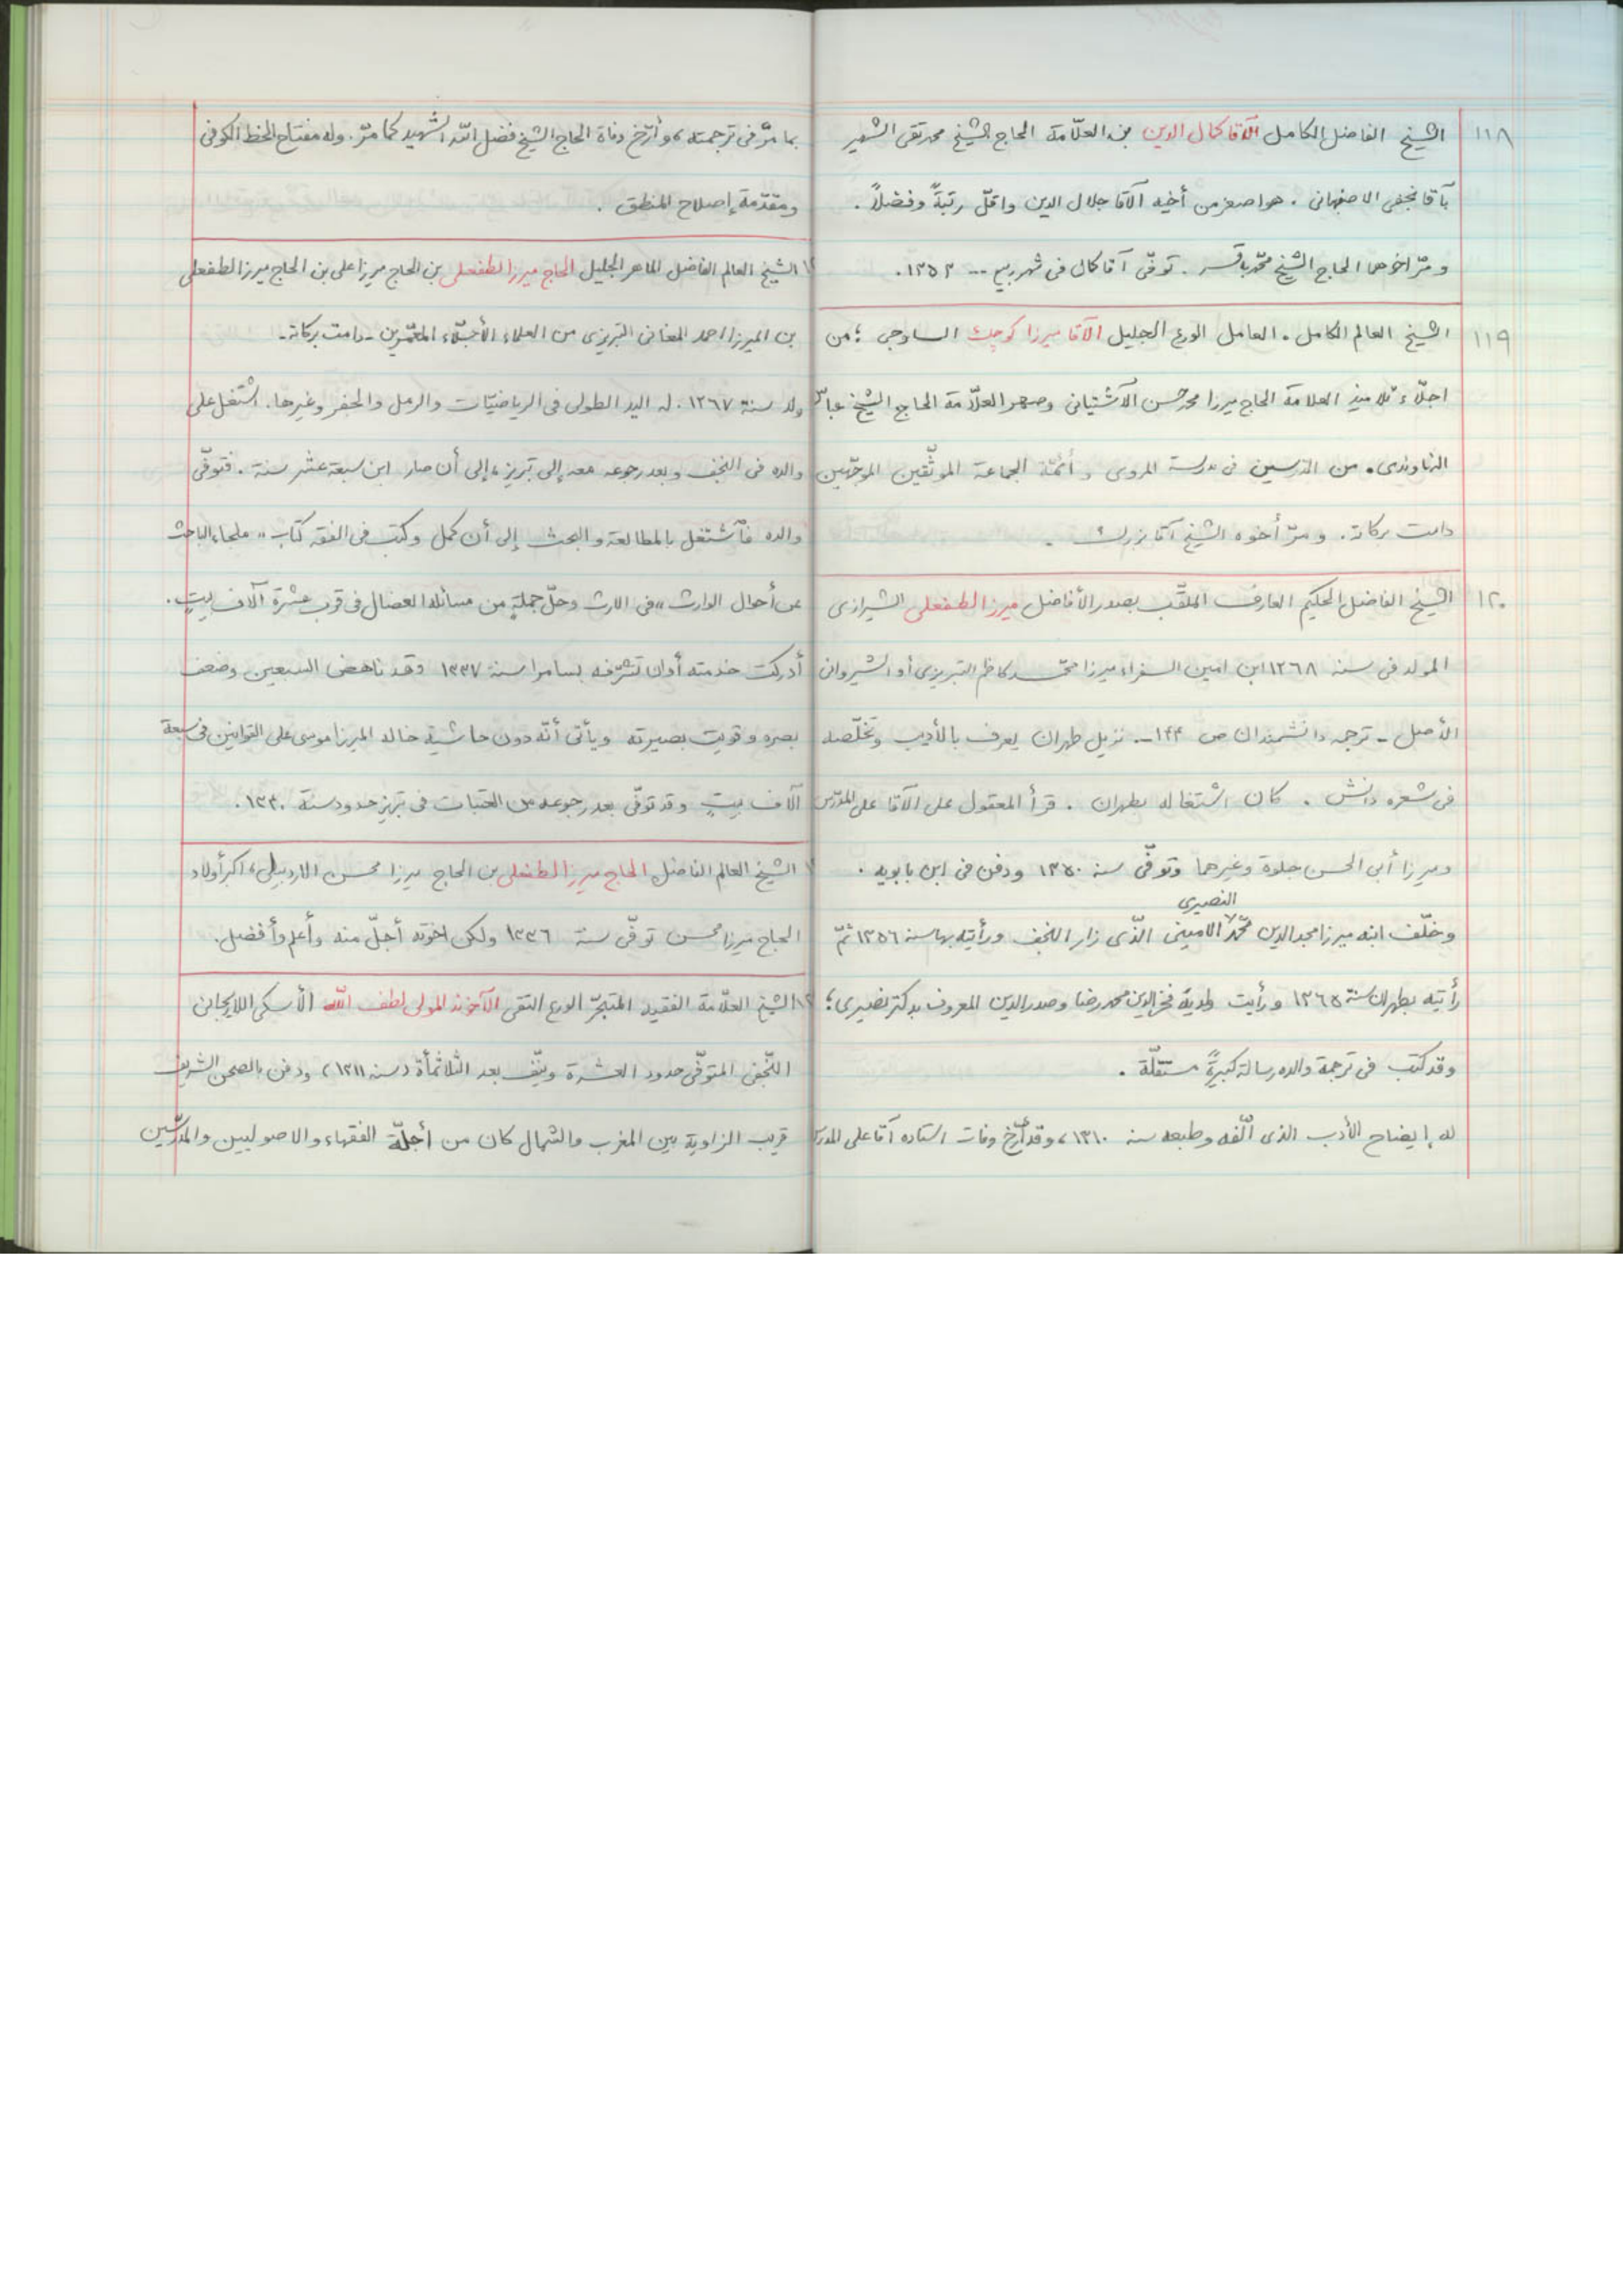 ١١٨ الشيخ الفاضل الكامل الآقا كمال الدين بن العلّامة الحاج الشيخ محمد تقى الشهير
بآقا نجفى الاصفهانى . هو اصغر من أخيه الآقا جلال الدين واقلّ رتبةً وفضلاً .
ومرّ اخوهما الحاج الشيخ محمّد باقر . توفّى آقا كمال فى شهر ربيع ... ١٣٥٣ .
١١٩ الشيخ العالم الكامل . العامل الورع الجليل الآقا ميرزا كوچك الساوجى ؛ من
اجلّاء تلاميذ العلامة الحاج ميرزا محمد حسن الآشتيانى وصهر العلّامة الحاج الشيخ عباس
النهاوندى . من المدرسين فى مدرسة المروى وأئمّة الجماعة الموثّقين الموجّهين
دامت بركاته . ومرّ أخوه الشيخ آقا بزرك .
١٢٠ الشيخ الفاضل الحكيم العارف الملقّب بصدر الأفاضل ميرزا لطفعلى الشيرازى
المولد فى سنه ١٢٦٨ ابن امين السفراء ميرزا محمّد كاظم التبريزى أو الشيروانى
الأصل - ترجمه دانشمندان ص ١٤٤ - نزيل طهران يعرف بالأديب وتخلّصه
فى شعره دانش . كان اشتغاله بطهران . قرأ المعقول على الآقا على المدرّس
وميرزا أبى الحسن جلوة وغيرهما وتوفّى سنه ١٣٥٠ ودفن فى ابن بابويه .
النصيرى
وخلّف ابنه ميرزا مجد الدين محمّد الامينى الّذى زار النجف ورأيته بها سنه ١٣٥٦ ثمّ
رأيته بطهران سنة ١٣٦٥ ورأيت ولديه فخر الدين محمد رضا وصدر الدين المعروف بدكتر نصيرى ؛
وقد كتب فى ترجمة والده رسالة كبيرةً مستقلّة .
له إيضاح الأدب الذى ألّفه وطبعه سنه ١٣١٠ ، وقد أرّخ وفات استاده آقا على المدرس
بما مرّ فى ترجمته ، وأرّخ وفاة الحاج الشيخ فضل اللّه الشهيد كما مرّ . وله مفتاح الخط الكوفى
ومقدّمة إصلاح المنطق .
الشيخ العالم الفاضل الماهر الجليل الحاج ميرزا لطفعلى بن الحاج ميرزا على بن الحاج ميرزا لطفعلى
بن الميرزا احمد المغانى التبريزى من العلماء الأجلّاء المعمّرين - دامت بركاته -
ولد سنة ١٢٦٧ . له اليد الطولى فى الرياضيّات والرمل والجفر وغيرها . اشتغل على
والده فى النجف وبعد رجوعه معه إلى تبريز ، إلى أن صار ابن سبعة عشر سنة . فتوفّى
والده فأشتغل بالمطالعة والبحث إلى أن كمل وكتب فى الفقه كتاب « ملجاء الباحث
عن أحوال الوارث » فى الارث وحلّ جملةٍ من مسائله العضال فى قرب عشرة آلاف بيتٍ .
أدركت خدمته أوان تشرّفه بسامرا سنة ١٣٣٧ وقد ناهض السبعين وضعف
بصره وقويت بصيرته ويأتى أنّه دون حاشية خاله الميرزا موسى على القوانين فى سبعة
آلاف بيتٍ وقد توفّى بعد رجوعه من العتبات فى تبريز حدود سنة ١٣٤٠ .
الشيخ العالم الفاضل الحاج ميرزا لطفعلى بن الحاج ميرزا محسن الاردبيلى ، اكبر أولاد
الحاج ميرزا محسن توفّى سنة ١٣٣٦ ولكن اخوته أجلّ منه وأعلم وأفضل .
الشيخ العلّامة الفقيه المتبحّر الورع التقى الآخوند المولى لطف اللّه الأسكى اللاريجانى
النّجفى المتوفّى حدود العشرة ونيّف بعد الثلاثمأة ( سنه ١٣١١ ) ودفن بالصحن الشريف
قريب الزاوية بين المغرب والشمال كان من أجلّة الفقهاء والاصوليين والمدرّسين